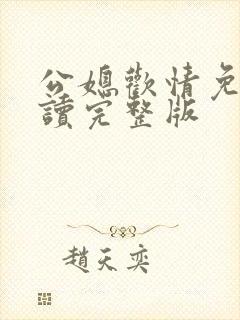 公媳歡情免
讀完整版
趙天奕